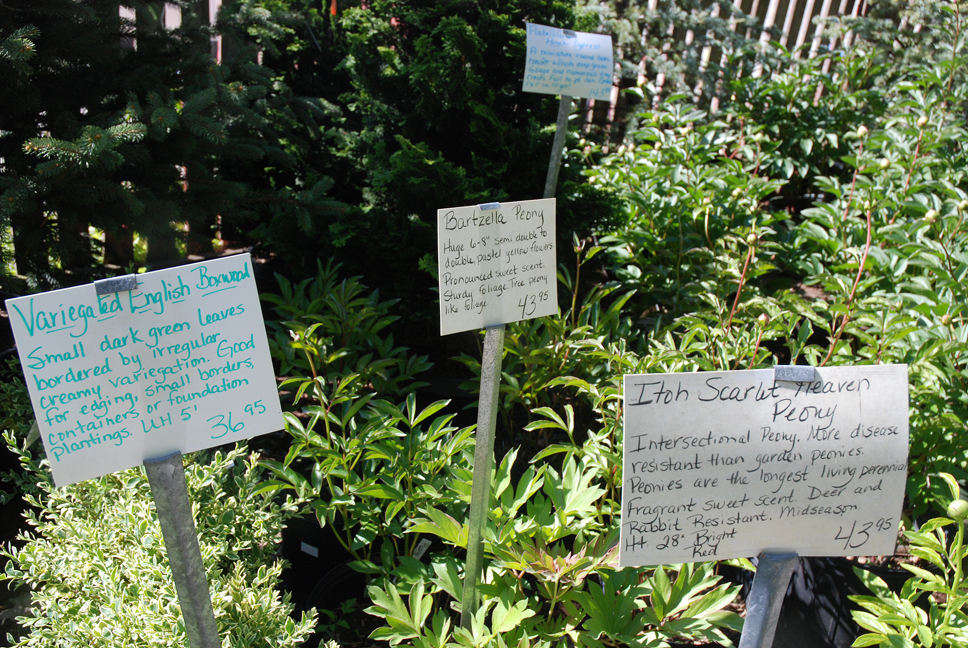 Variegated English Boxwood
Small dark green leaves
bordered by irregular
creamy variegation. Good
for edging, small borders,
containers or foundation
plantings. UH 5' 36 95
Bartzella Peony
Huge 6-8" semi double to
double, pastel yellow flowers
Pronounced sweet scent.
Sturdy foliage Tree peony
like foliage 43 95
A miniature round
Itoh Scarlet Heaven
Peony
Intersectional Peony. More disease
resistant than garden peonies.
Peonies are the longest living perennial
Fragrant sweet scent Deer and
Rabbit Resistant. Midseason.
Ht 28" Bright
Red 43 95